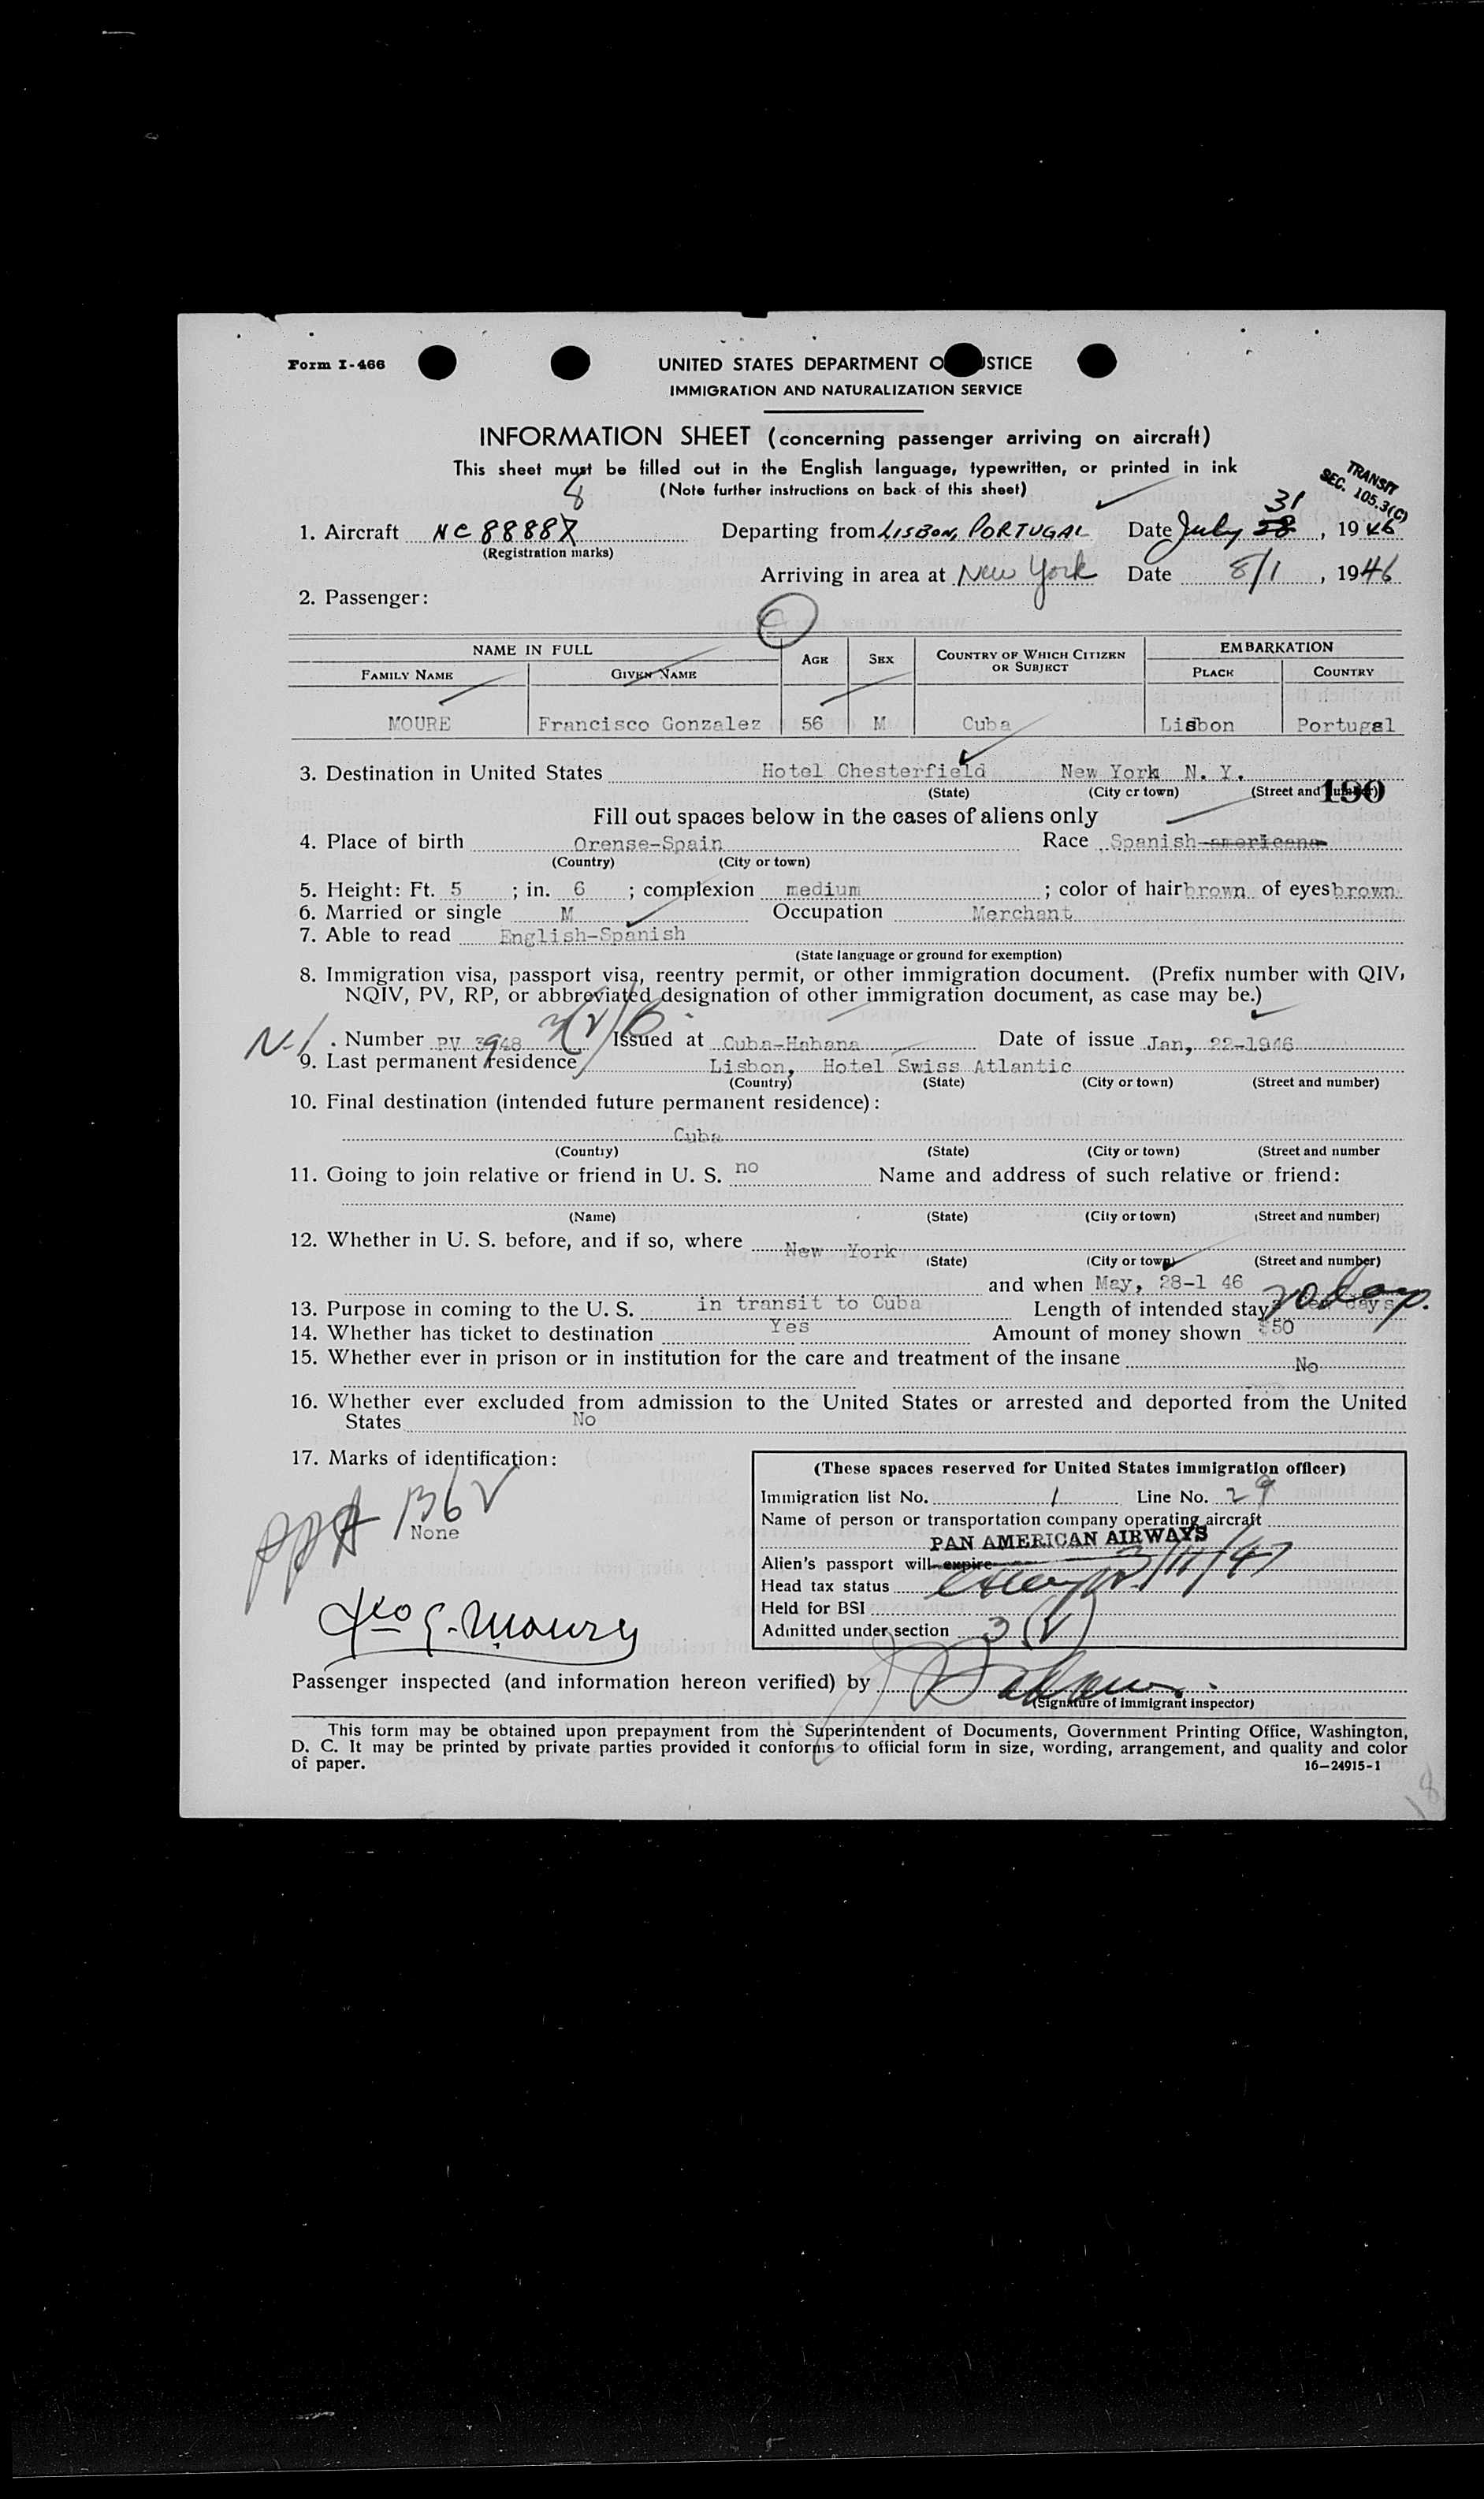 Form I-466
UNITED STATES DEPARTMENT O JSTICE
IMMIGRATION AND NATURALIZATION SERVICE
INFORMATION SHEET (concerning passenger arriving on aircraft)
This sheet must be filled out in the English language, typewritten, or printed in ink
(Note further instructions on back of this sheet)
TRANSIT
SEC. 105.3(C)
8 31
1. Aircraft NC 8888X Departing from LISBON, PORTUGAL Date July 28, 1946
(Registration marks)
Arriving in area at New York Date 8/1, 1946
2. Passenger:
NAME IN FULL AGE SEX COUNTRY OF WHICH CITIZEN OR SUBJECT EMBARKATION
FAMILY NAME GIVEN NAME PLACE COUNTRY
MOURE Francisco Gonzalez 56 M Cuba Lisbon Portugal
3. Destination in United States Hotel Chesterfield New York N. Y.
(State) (City or town) (Street and number) 190
Fill out spaces below in the cases of aliens only
4. Place of birth Orense-Spain Race Spanish-americana
(Country) (City or town)
5. Height: Ft. 5 ; in. 6 ; complexion medium ; color of hair brown of eyes brown
6. Married or single M Occupation Merchant
7. Able to read English-Spanish
(State language or ground for exemption)
8. Immigration visa, passport visa, reentry permit, or other immigration document. (Prefix number with QIV,
NQIV, PV, RP, or abbreviated designation of other immigration document, as case may be.)
Number PV 3948 Issued at Cuba-Habana Date of issue Jan, 22-1946
9. Last permanent residence Lisbon, Hotel Swiss Atlantic
(Country) (State) (City or town) (Street and number)
10. Final destination (intended future permanent residence):
Cuba
(Country) (State) (City or town) (Street and number
11. Going to join relative or friend in U. S. no Name and address of such relative or friend:
(Name) (State) (City or town) (Street and number)
12. Whether in U. S. before, and if so, where New York
(State) (City or town) (Street and number)
and when May, 28-1 46
13. Purpose in coming to the U. S. in transit to Cuba Length of intended stay days
14. Whether has ticket to destination Yes Amount of money shown $50
15. Whether ever in prison or in institution for the care and treatment of the insane No
16. Whether ever excluded from admission to the United States or arrested and deported from the United
States No
17. Marks of identification:
None
(These spaces reserved for United States immigration officer)
Immigration list No. 1 Line No. 29
Name of person or transportation company operating aircraft
PAN AMERICAN AIRWAYS
Alien's passport will expire 3/11/47
Head tax status
Held for BSI
Admitted under section 3(V)
Passenger inspected (and information hereon verified) by
(Signature of immigrant inspector)
This form may be obtained upon prepayment from the Superintendent of Documents, Government Printing Office, Washington,
D. C. It may be printed by private parties provided it conforms to official form in size, wording, arrangement, and quality and color
of paper. 16—24915-1
18